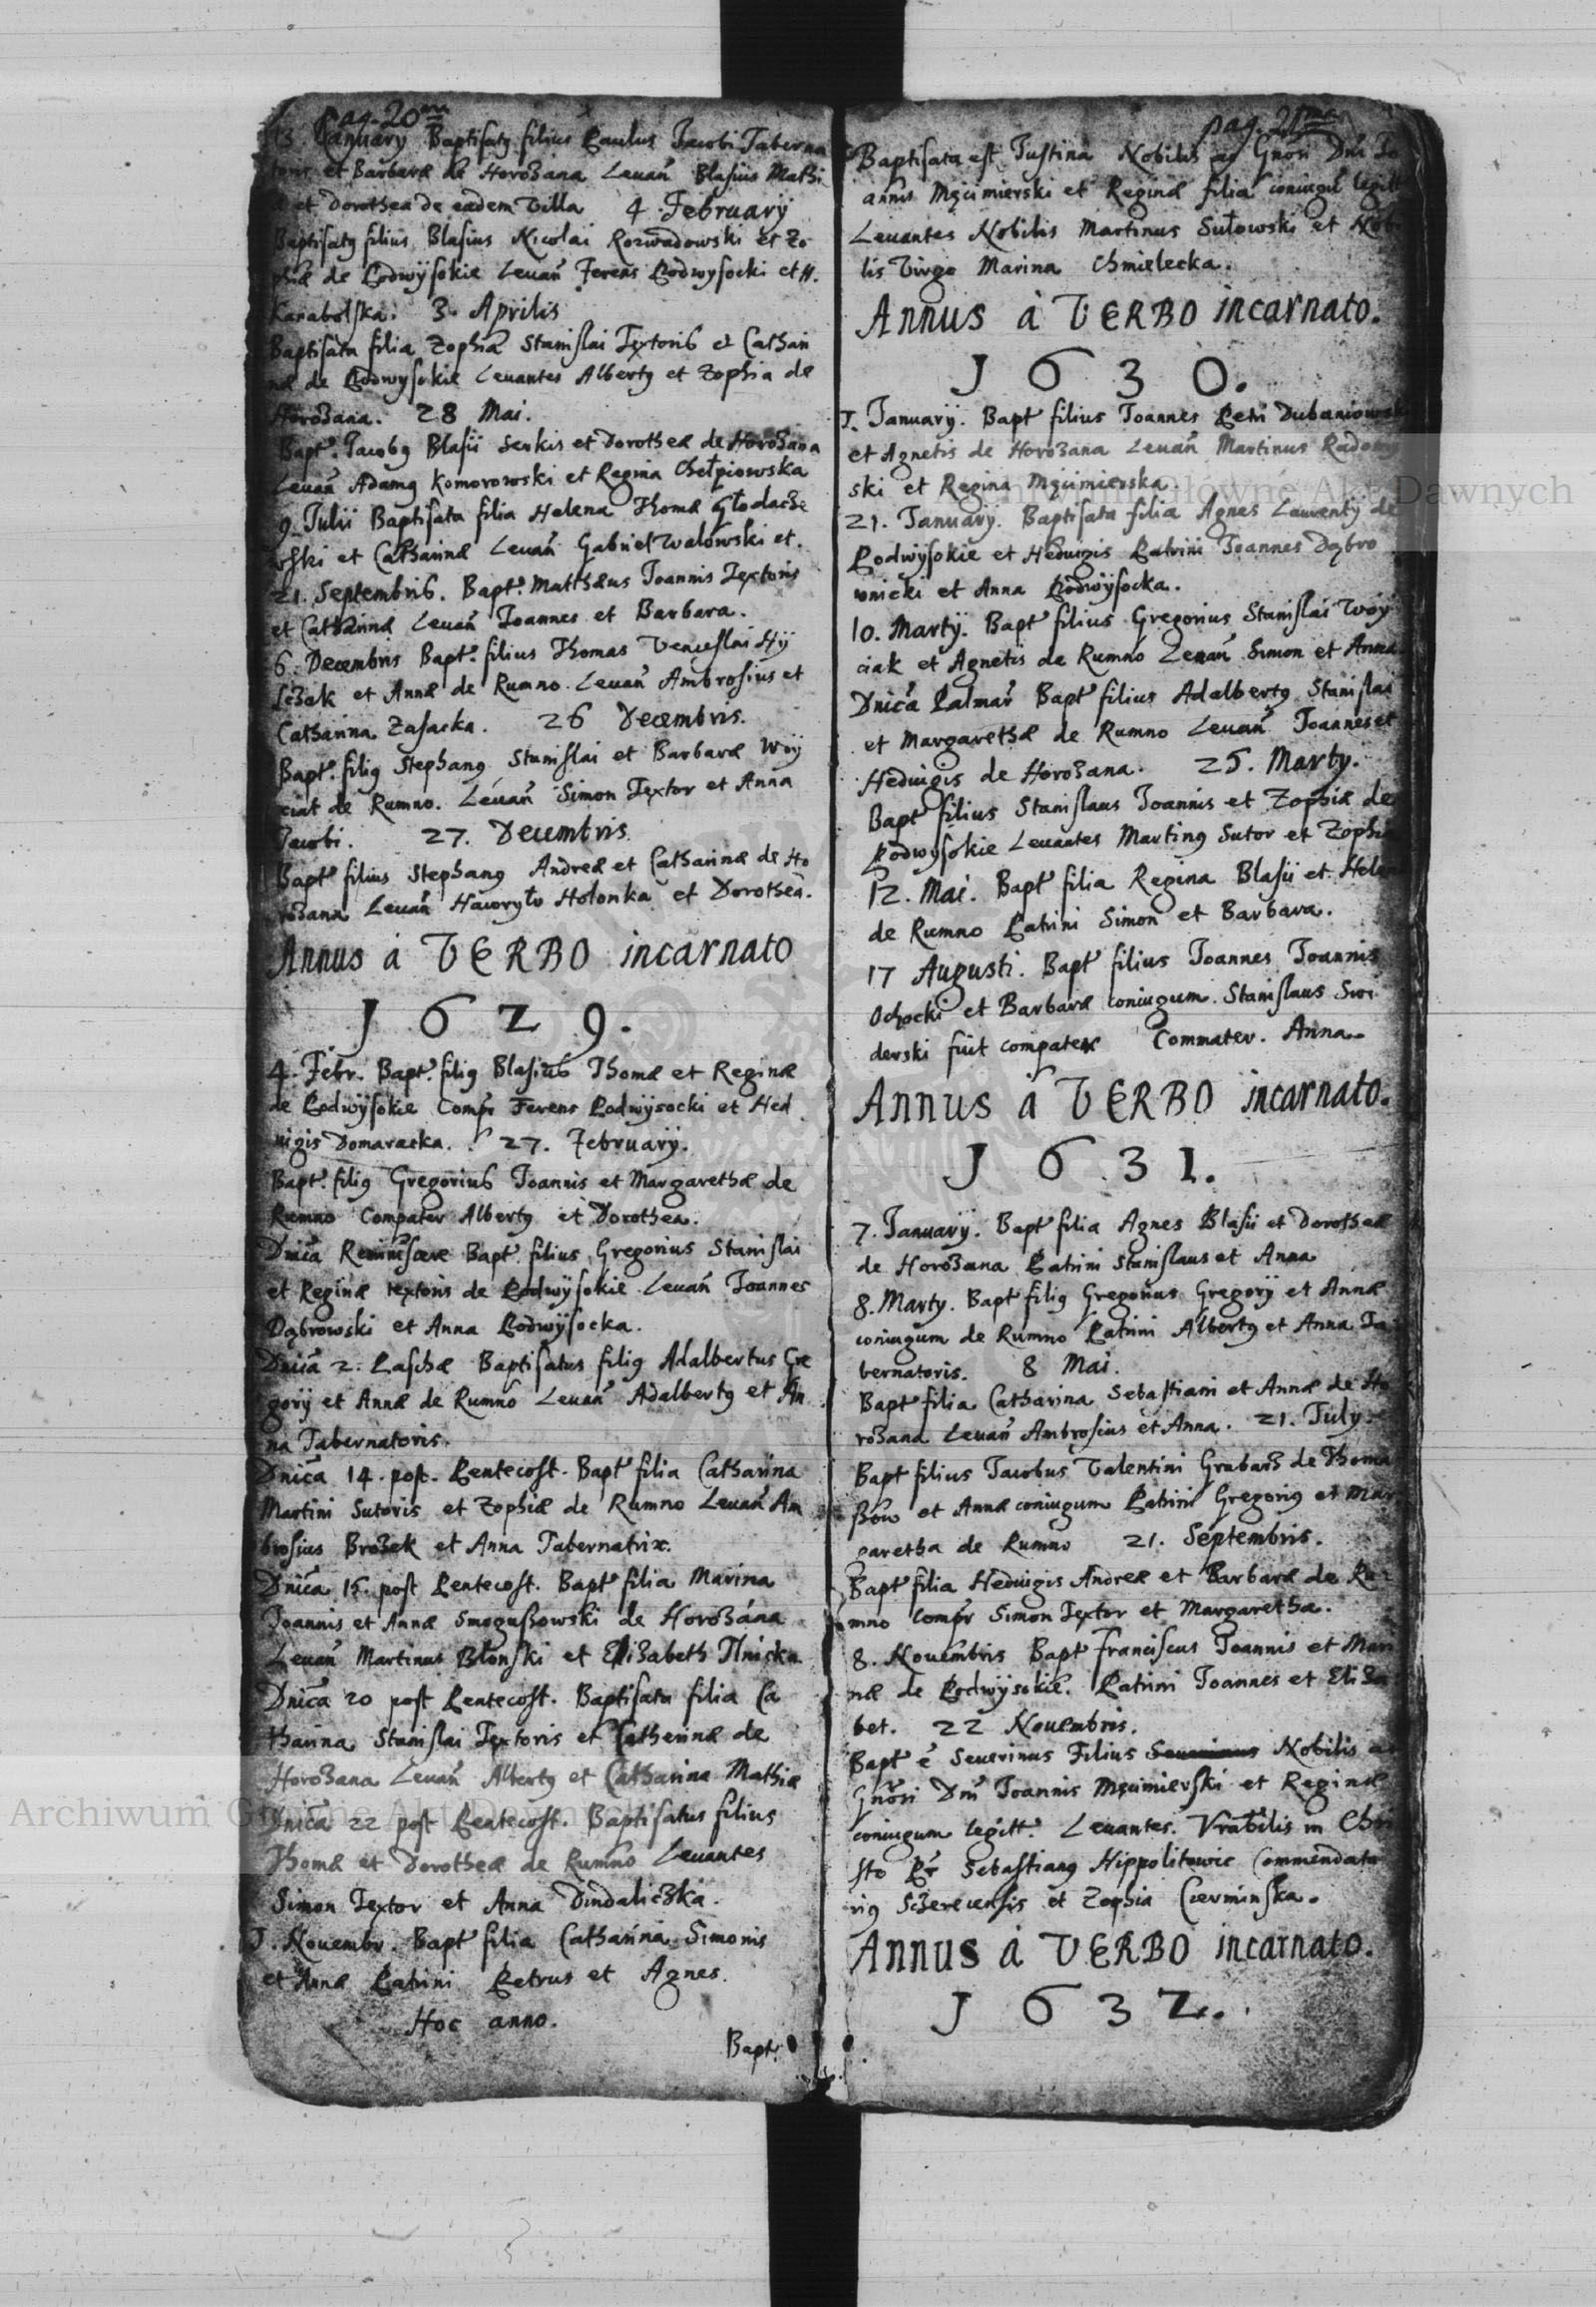 pag. 20ma
13. January Baptisatg filius Paulus Jacobi Taberna
toris et Barbaræ de Horożana Leuañ Blasius Mathi
et Dorothea de eadem Villa 4 February
Baptisatg filius Blasius Nicolai Rozwadowski et Zo
phiæ de Podwÿsokie Leuañ Ferens Podwysocki et H.
Karabolska. 3. Aprilis
Baptisata filia Zophia Stanislai Textoris et Cathari
næ de Podwysokie Leuantes Albertg et Zophia de
Horożana. 28 Mai.
Bapt. Jacobg Blasii Senkis et Dorotheæ de Horożana
Leuañ Adamg Komorowski et Regina Chełpiowska
9. Julii Baptisata filia Helena Thomæ Głodacze
wski et Catharinæ Leuañ Gabriel Walowski et.
21. Septembris. Bapt. Matthæus Joannis Textoris
et Catharinæ Leuañ Joannes et Barbara.
6. Decembris Bapt. filius Thomas Venceslai Hÿ
sczak et Annæ de Rumno. Leuañ Ambrosius et
Catharina Zasacka. 26 Decembris.
Bapt. filig Stephang Stanislai et Barbaræ Woÿ
ciak de Rumno. Leuañ Simon Textor et Anna
Jacobi. 27. Decembris
Bapt filius Stephang Andreæ et Catharinæ de Ho
rożana Leuañ Hawryło Holonka et Dorothea.
Annus á VERBO incarnato
J 6 2 9.
4. Febr. Bapt. filig Blasius Thomæ et Reginæ
de Podwÿsokie Comp̃r Ferens Podwysocki et Hed
uigis Domaracka. 27. Februarÿ.
Bapt. filig Gregorius Joannis et Margarethæ de
Rumno Compater Albertg et Dorothea.
Dnica Reminiscere Bapt. filius Gregorius Stanislai
et Reginæ textoris de Podwÿsokie Leuañ Joannes
Dąbrowski et Anna Podwÿsocka.
Dnica 2. Paschæ Baptisatus filig Adalbertus Gre
gorÿ et Annæ de Rumno Leuañ Adalbertg et An
na Tabernatoris.
Dnica 14. post. Pentecost. Bapt filia Catharina
Martini Sutoris et Zophiæ de Rumno Leuañ Am
brosius Brożek et Anna Tabernatrix.
Dnica 15. post Pentecost. Bapt filia Marina
Joannis et Annæ Smoguszowski de Horożana
Leuañ Martinus Błonski et Elizabeth Ilnicka
Dnica 20 post Pentecost. Baptisata filia Ca
tharina Stanislai Textoris et Catherinæ de
Horożana Leuañ Albertg et Catharina Mathiæ
Dnica 22 post Pentecost. Baptisatus filius
Thomæ et Dorotheæ de Rumno Leuantes
Simon Textor et Anna Dindaliczka.
J. Nouembr. Bapt filia Catharina Simonis
et Annæ Patrini Petrus et Agnes.
Hoc anno.
Bapt.
pag. 21ma
Baptisata est Justina Nobilis ac Gnosi Dni Jo
annis Męcimierski et Reginæ filia coniugũ legitt
Leuantes Nobilis Martinus Sułowski et Nobi
lis Virgo Marina Chmielecka.
Annus á VERBO incarnato.
J 6 3 0.
J. Januarÿ. Bapt filius Joannes Petri Dubaniowski
et Agnetis de Horożana Leuañ Martinus Radomy
ski et Regina Męcimierska.
21. Januarÿ. Baptisata filia Agnes Laurentÿ de
Podwÿsokie et Heduigis Patrini Joannes Dąbro
wnicki et Anna Podwÿsocka.
10. Martÿ. Bapt filius Gregorius Stanislai Woÿ
ciak et Agnetis de Rumno Leuañ Simon et Anna
Dnica Palmar Bapt filius Adalbertg Stanislai
et Margarethæ de Rumno Leuañ Joannes et
Heduigis de Horożana. 25. Marty.
Bapt filius Stanislaus Joannis et Zophiæ de
Podwÿsokie Leuantes Marting Sutor et Zophia
12. Mai. Bapt filia Regina Blasii et Helenæ
de Rumno Patrini Simon et Barbara.
17 Augusti. Bapt filius Joannes Joannis
Ochocki et Barbaræ coniugum. Stanislaus Swi
derski fuit compater Commater. Anna
Annus á VERBO incarnato.
J 6 3 1.
7. Januarÿ. Bapt filia Agnes Blasii et Dorotheæ
de Horożana Patrini Stanislaus et Anna
8. Marty. Bapt filig Gregorius Gregorÿ et Annæ
coniugum de Rumno Patrini Albertg et Anna Ta
bernatoris. 8 Mai.
Bapt filia Catharina Sebastiani et Annæ de Ho
rożana Leuañ Ambrosius et Anna. 21. July.
Bapt filius Jacobus Valentini Grabarz de Thoma
szow et Annæ coniugum Patrini Gregorig et Mar
garetha de Rumno 21. Septembris.
Bapt filia Heduigis Andreæ et Barbaræ de Ru
mno Comp̃r Simon Textor et Margaretha.
8. Nouembris Bapt Franciscus Joannis et Mari
næ de Podwÿsokie. Patrini Joannes et Eliza
bet. 22 Nouembris.
Bapt ẽ Seuerinus Filius Seuerinus Nobilis ac
Gñosi Dñi Joannis Męcimierski et Reginæ
coniugum legitt. Leuantes. Vrabilis in Chri
sto Pr Sebastiang Hippolitowic Commendata
rig Sczerecensis et Zophia Czerminska.
Annus á VERBO incarnato.
J 6 3 2.
Archiwum Główne Akt Dawnych
Archiwum Główne Akt Dawnych